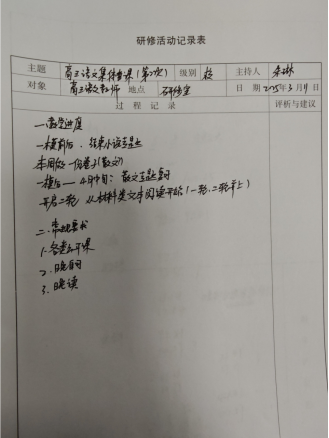 研修活动记录表
主题 高三语文集体备课（第2次） 级别 校 主持人
对象 高三语文教师 地点 研修室 日期 2025年3月11日
过程记录 评析与建议
一、教学进度
一模前后：结束小说专题
本周做一份卷子（散文）
一模后——4月中旬：散文专题复习
开启二轮，从材料类文本阅读开始（一轮、二轮并上）
二、常规要求
1、各类公开课
2、晚自习
3、晚读